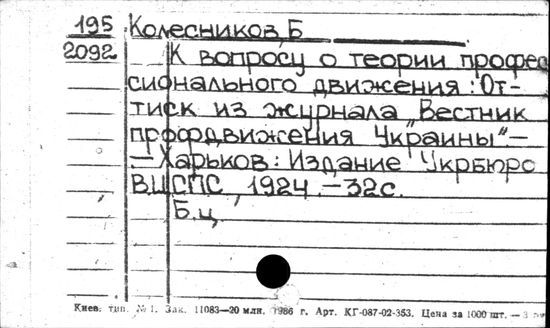 195 Колесников, Б
2092 К вопросу о теории профес
сионального движения: От-
тиск из журнала „Вестник
профдвижения Украины“.—
—Харьков: Издание Укрбюро
ВЦСПС, 1924.—32с.
Б.ц.
Киев. тип. №1. Зак. 11083—20 млн. 1986 г. Арт. КГ-087-02-353. Цена за 1000 шт.—3